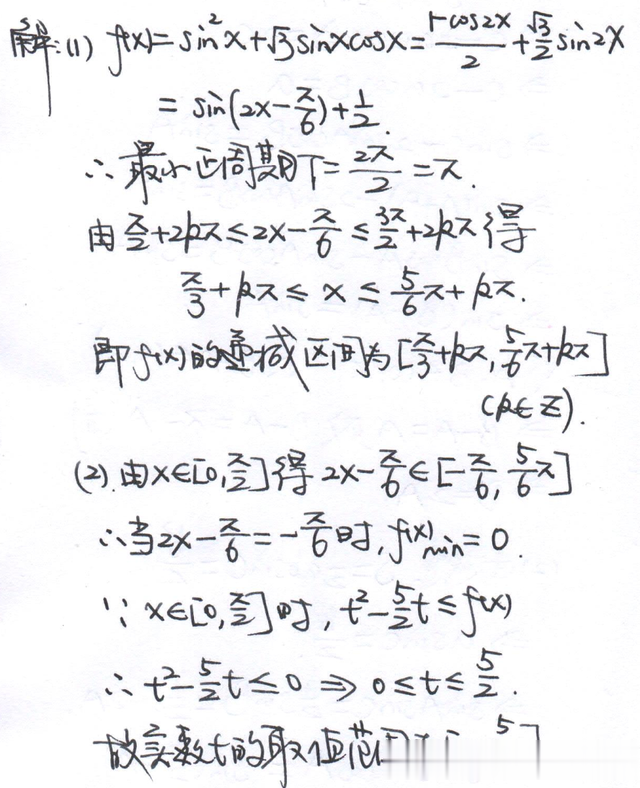 解:(1) f(x)=sin²x+√3sinxcosx=(1-cos2x)/2+(√3/2)sin2x
=sin(2x-π/6)+1/2.
∴最小正周期T=2π/2=π.
由π/2+2kπ≤2x-π/6≤3π/2+2kπ得
π/3+kπ≤x≤5/6π+kπ.
即f(x)的递减区间为[π/3+kπ,5/6π+kπ]
(k∈Z).
(2).由x∈[0,π/2]得2x-π/6∈[-π/6,5/6π]
∴当2x-π/6=-π/6时,f(x)min=0.
∵x∈[0,π/2]时,t²-5/2t≤f(x)
∴t²-5/2t≤0⇒0≤t≤5/2.
故实数t的取值范围